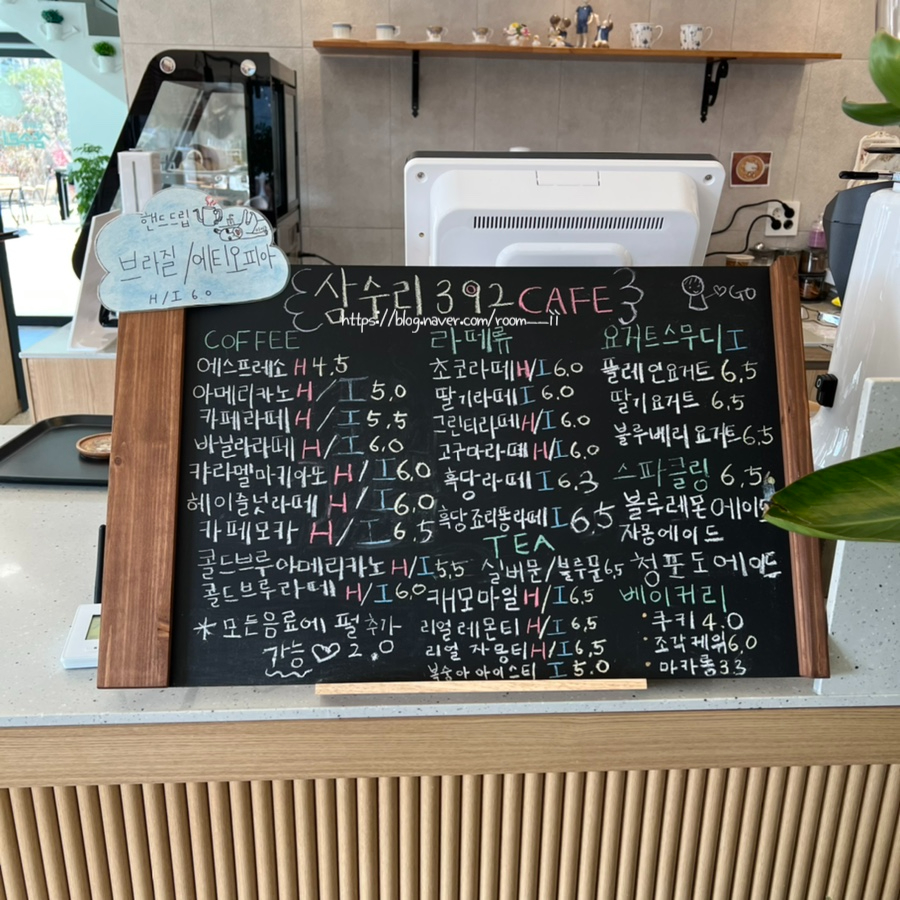 핸드드립
브라질/에티오피아
H/I 6.0
삼수리392 CAFE
♡GO
https://blog.naver.com/room__ii
COFFEE
에스프레소 H 4.5
아메리카노 H/I 5.0
카페라떼 H/I 5.5
바닐라라떼 H/I 6.0
카라멜마키아또 H/I 6.0
헤이즐넛라떼 H/I 6.0
카페모카 H/I 6.5
콜드브루아메리카노 H/I 5.5
콜드브루라떼 H/I 6.0
*모든음료에 펄추가
가능♡2.0
라떼류
초코라떼 H/I 6.0
딸기라떼 I 6.0
그린티라떼 H/I 6.0
고구마라떼 H/I 6.0
흑당라떼 I 6.3
흑당조리퐁라떼 I 6.5
TEA
실버문/블루문 6.5
캐모마일 H/I 6.5
리얼레몬티 H/I 6.5
리얼 자몽티 H/I 6.5
복숭아 아이스티 I 5.0
요거트스무디 I
플레인요거트 6.5
딸기요거트 6.5
블루베리요거트 6.5
스파클링 6.5
블루레몬에이드
자몽에이드
청포도에이드
베이커리
·쿠키 4.0
·조각케익 6.0
·마카롱 3.3